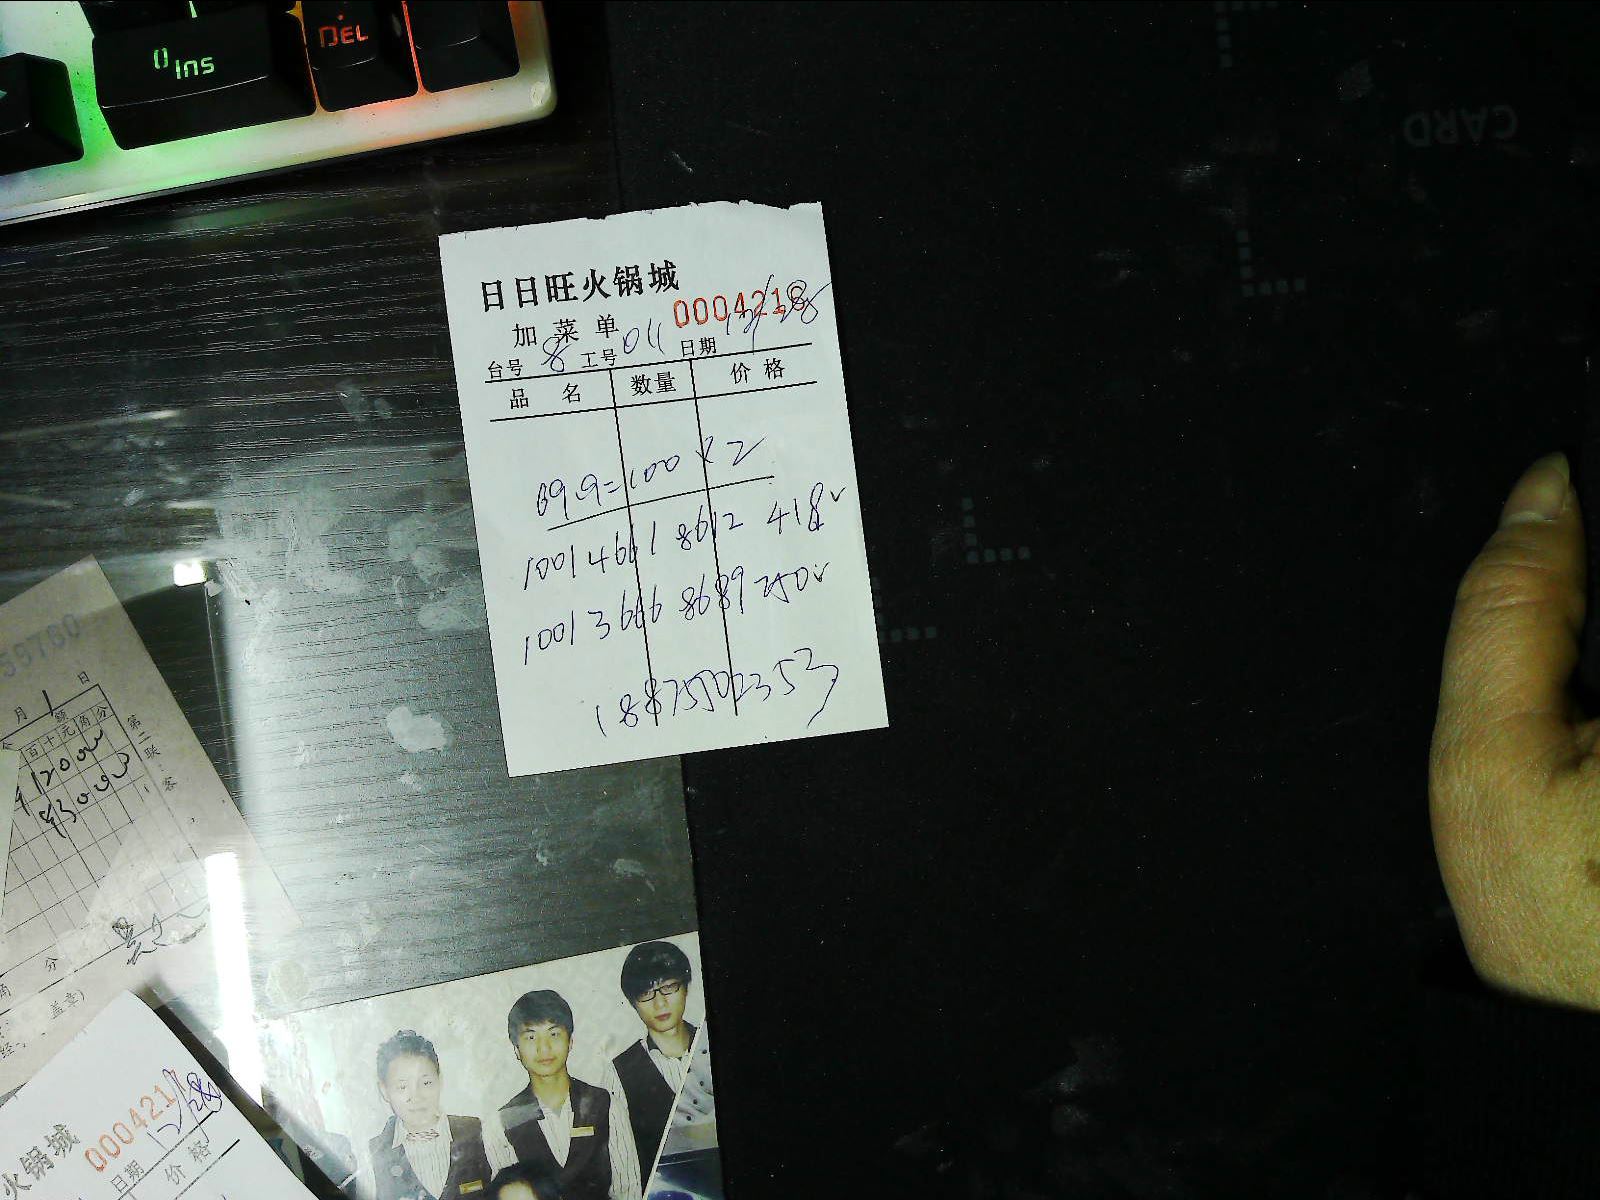 0 Ins
DEL
CARD
日日旺火锅城
0004218
加菜单
台号 8 工号 011 日期 12/28
品名 数量 价格
69.9=100 × 2
1001 4661 8612 418✓
1001 3666 8689 250✓
18875502353
日
月
额
百十元角分
第二联:客
分
角
盖章)
火锅城
日期 12/28
价格